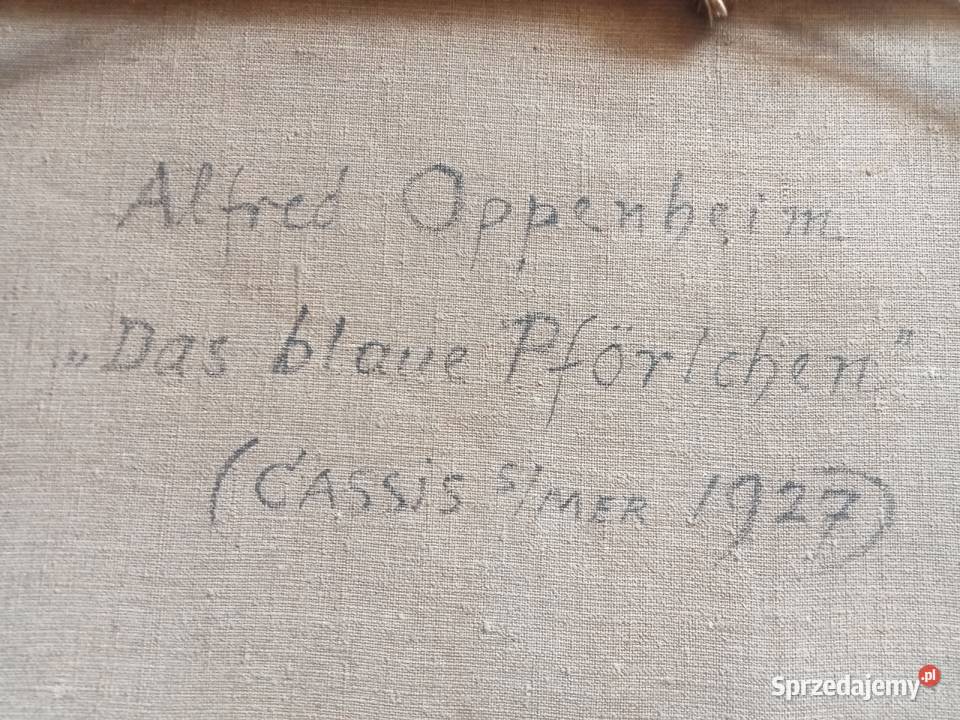 Alfred Oppenheim
„Das blaue Pförlchen"
(CASSiS s/MER 1927)
Sprzedajemy.pl